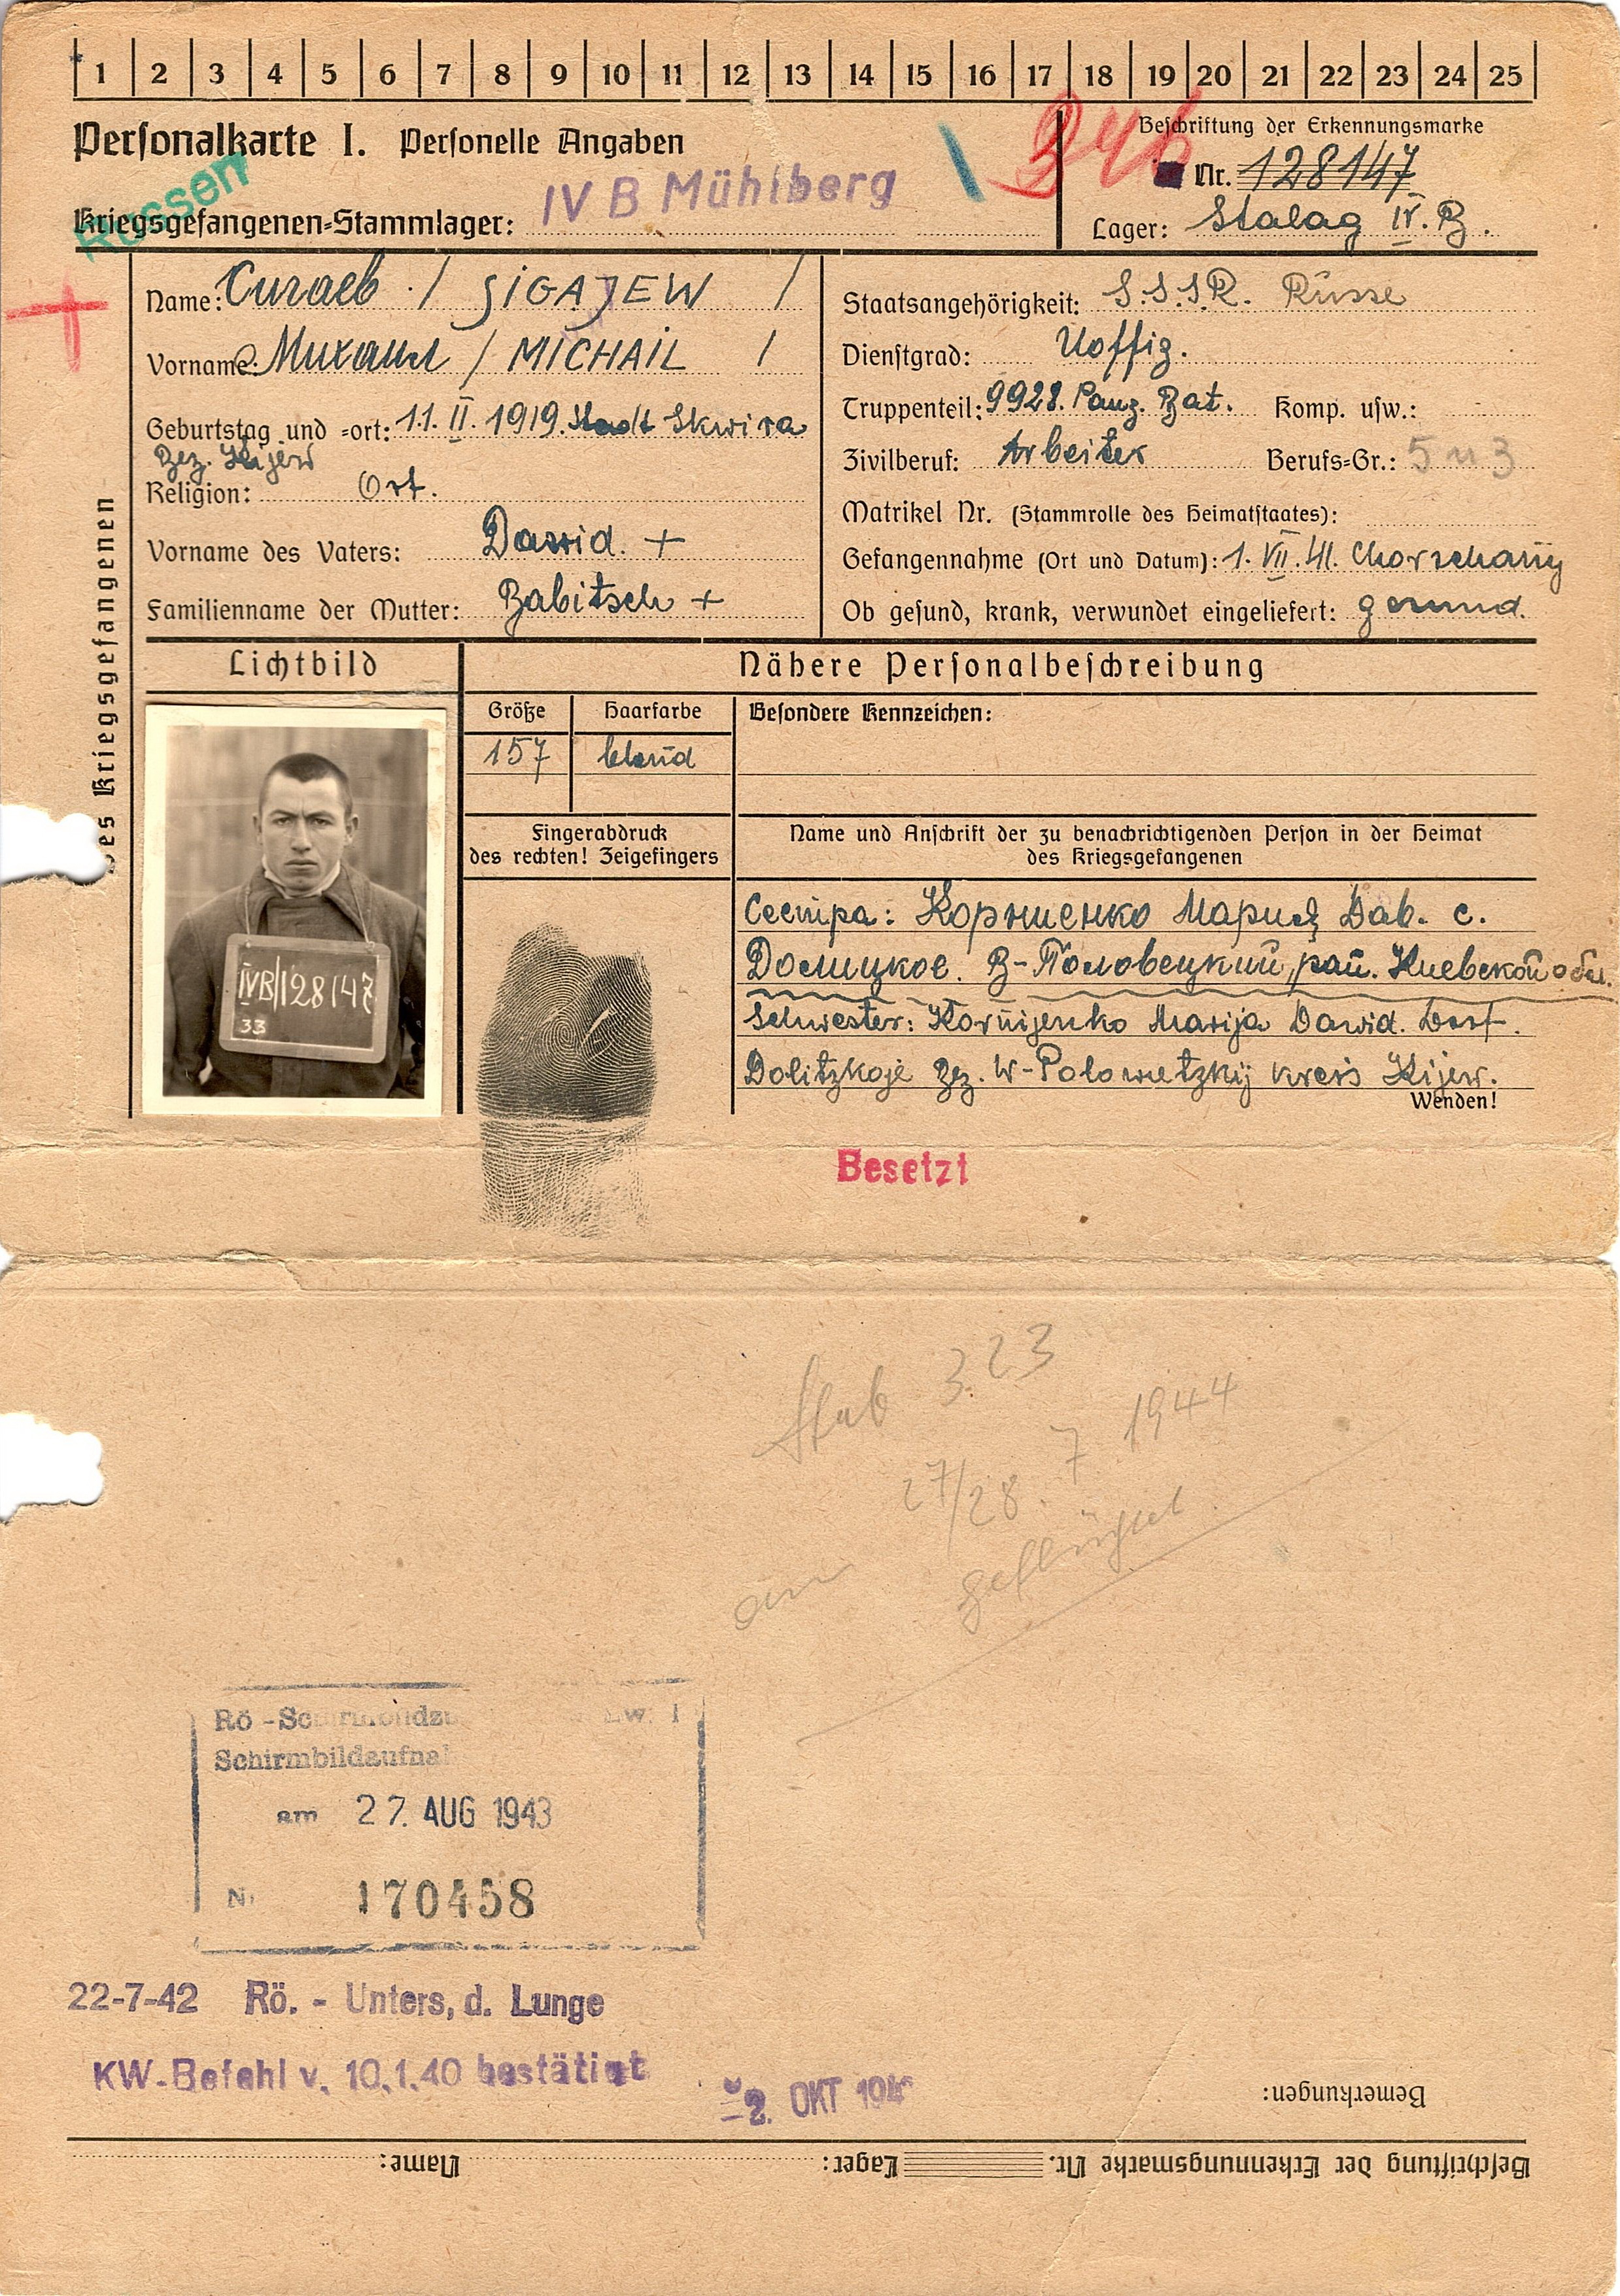 1 2 3 4 5 6 7 8 9 10 11 12 13 14 15 16 17 18 19 20 21 22 23 24 25
Personalkarte I. Personelle Angaben
Beschriftung der Erkennungsmarke
Nr. 128147
Russen
Kriegsgefangenen-Stammlager: IV B Mühlberg
Lager: Stalag IV. B.
des Kriegsgefangenen
Name: Сигаев / SIGAJEW /
Vorname: Михаил / MICHAIL /
Geburtstag und -ort: 11. II. 1919. Stadt Skwira
Bez. Kijew
Religion: Ort.
Vorname des Vaters: Dawid. +
Familienname der Mutter: Babitsch +
Staatsangehörigkeit: S.S.S.R. Russe
Dienstgrad: Uoffiz.
Truppenteil: 9928. Panz. Bat. Komp. usw.:
Zivilberuf: Arbeiter Berufs-Gr.: 5 u 3
Matrikel Nr. (Stammrolle des Heimatstaates):
Gefangennahme (Ort und Datum): 1. VII. 41.
Ob gesund, krank, verwundet eingeliefert: gesund.
Lichtbild
Nähere Personalbeschreibung
Größe Haarfarbe Besondere Kennzeichen:
157 blond
IVB/128147
33
Fingerabdruck
des rechten! Zeigefingers
Name und Anschrift der zu benachrichtigenden Person in der Heimat
des Kriegsgefangenen
Сестра: Корниенко Мария Дав. с.
Долицкое. В-Половецкий рай. Киевской обл.
Schwester: Kornijenko Marija Dawid. Dorf.
Dolitzkoje Bez. W-Polowetzkij Kreis Kijew.
Wenden!
Besetzt
Stab 323
am 27/28. 7 1944
geflüchtet.
Schirmbildaufna
am 27. AUG 1943
170458
22-7-42 Rö. - Unters, d. Lunge
KW-Befehl v. 10.1.40 bestätigt
2. OKT
Bemerkungen:
Beschriftung der Erkennungsmarke Nr. Lager: Name: